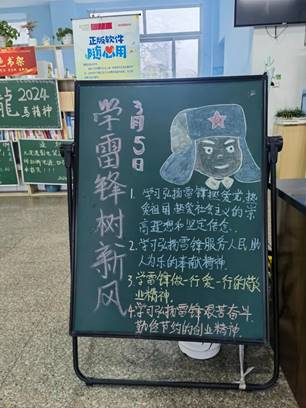 正版软件
随心用
色书架
龍 2024
馬精神
学雷锋树新风
3月5日
1. 学习弘扬雷锋热爱党,热
爱祖国,热爱社会主义的崇
高理想和坚定信念.
2. 学习弘扬雷锋服务人民,助
人为乐的奉献精神
3. 学雷锋做一行爱一行的敬
业精神.
4. 学习弘扬雷锋艰苦奋斗
勤俭节约的创业精神.